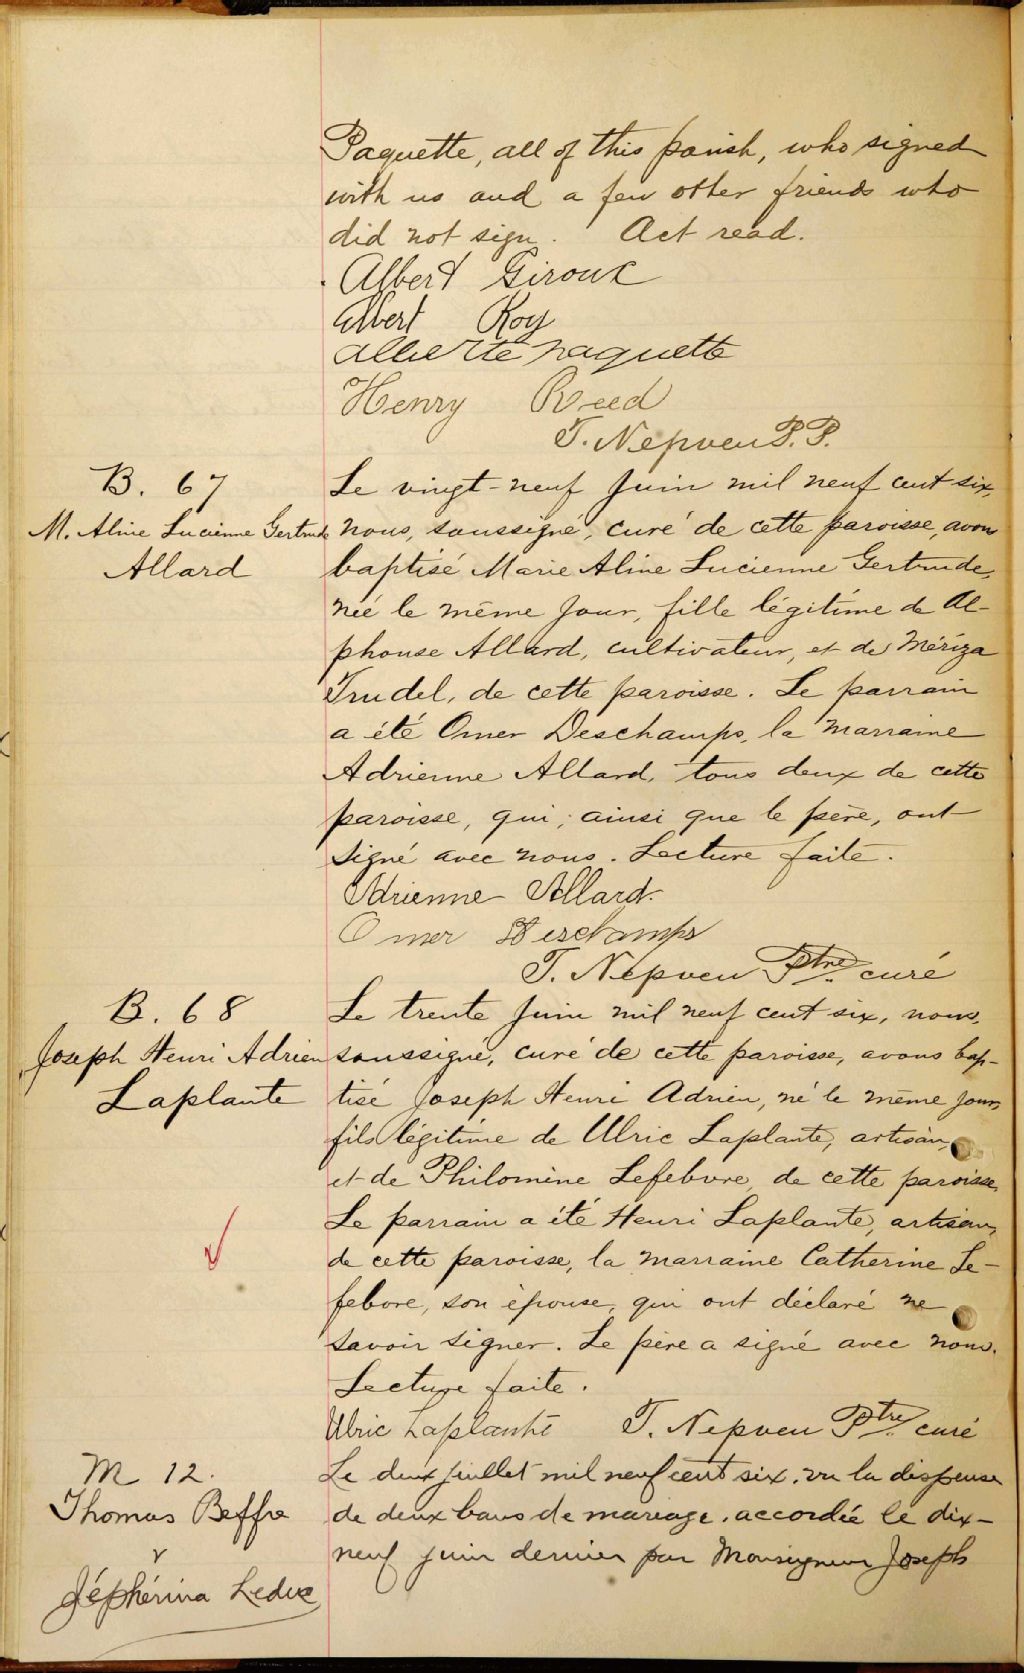 Paquette, all of this parish, who signed
with us and a few other friends who
did not sign. Act read.
Albert Giroux
Albert Roy
Alberte Paquette
Henry Reed
T. Nepveu P.P.
B. 67
M. Aline Lucienne Gertrude
Allard
Le vingt-neuf Juin mil neuf cent six,
nous, soussigné, curé de cette paroisse, avons
baptisé Marie Aline Lucienne Gertrude,
née le même jour, fille légitime de Al-
phonse Allard, cultivateur, et de Mériza
Trudel, de cette paroisse. Le parrain
a été Omer Deschamps, la marraine
Adrienne Allard, tous deux de cette
paroisse, qui, ainsi que le père, ont
signé avec nous. Lecture faite.
Adrienne Allard.
Omer Deschamps
T. Nepveu Ptre. curé
B. 68
Joseph Henri Adrien
Laplante
Le trente Juin mil neuf cent six, nous,
soussigné, curé de cette paroisse, avons bap-
tisé Joseph Henri Adrien, né le même jour,
fils légitime de Ulric Laplante, artisan,
et de Philomène Lefebvre, de cette paroisse.
Le parrain a été Henri Laplante, artisan,
de cette paroisse, la marraine Catherine Le-
febvre, son épouse, qui ont déclaré ne
savoir signer. Le père a signé avec nous.
Lecture faite.
Ulric Laplante T. Nepveu Ptre. curé
M 12.
Thomas Beffre
&
Jéphérina Leduc
Le deux juillet mil neuf cent six, vu la dispense
de deux bans de mariage, accordée le dix-
neuf juin dernier par Monseigneur Joseph